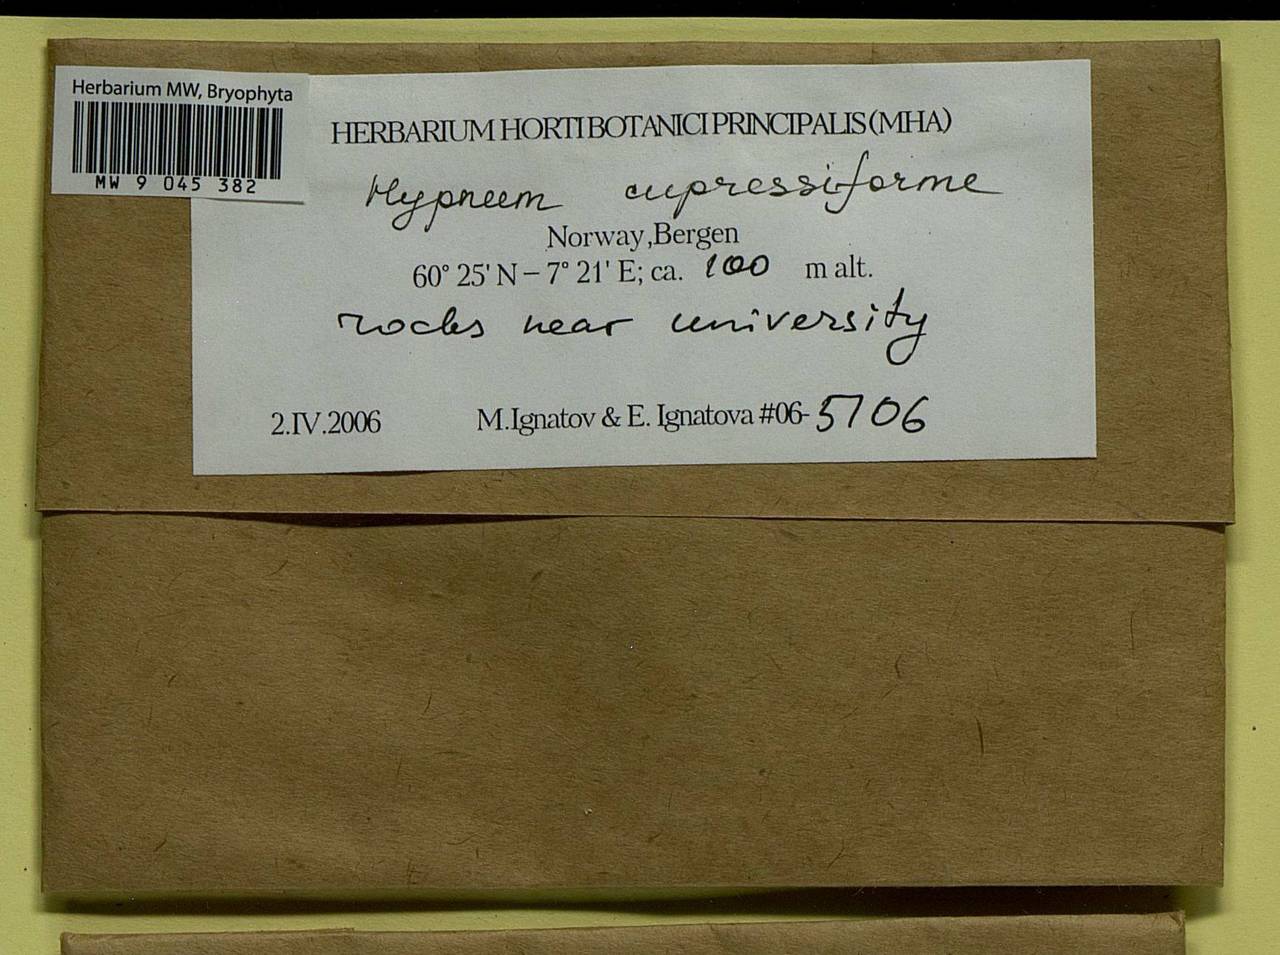 Herbarium MW, Bryophyta
MW 9 045 382
HERBARIUM HORTI BOTANICI PRINCIPALIS (MHA)
Hypnum cupressiforme
Norway, Bergen
60° 25' N – 7° 21' E; ca. 100 m alt.
rocks near university
2.IV.2006 M.Ignatov & E. Ignatova #06-5706